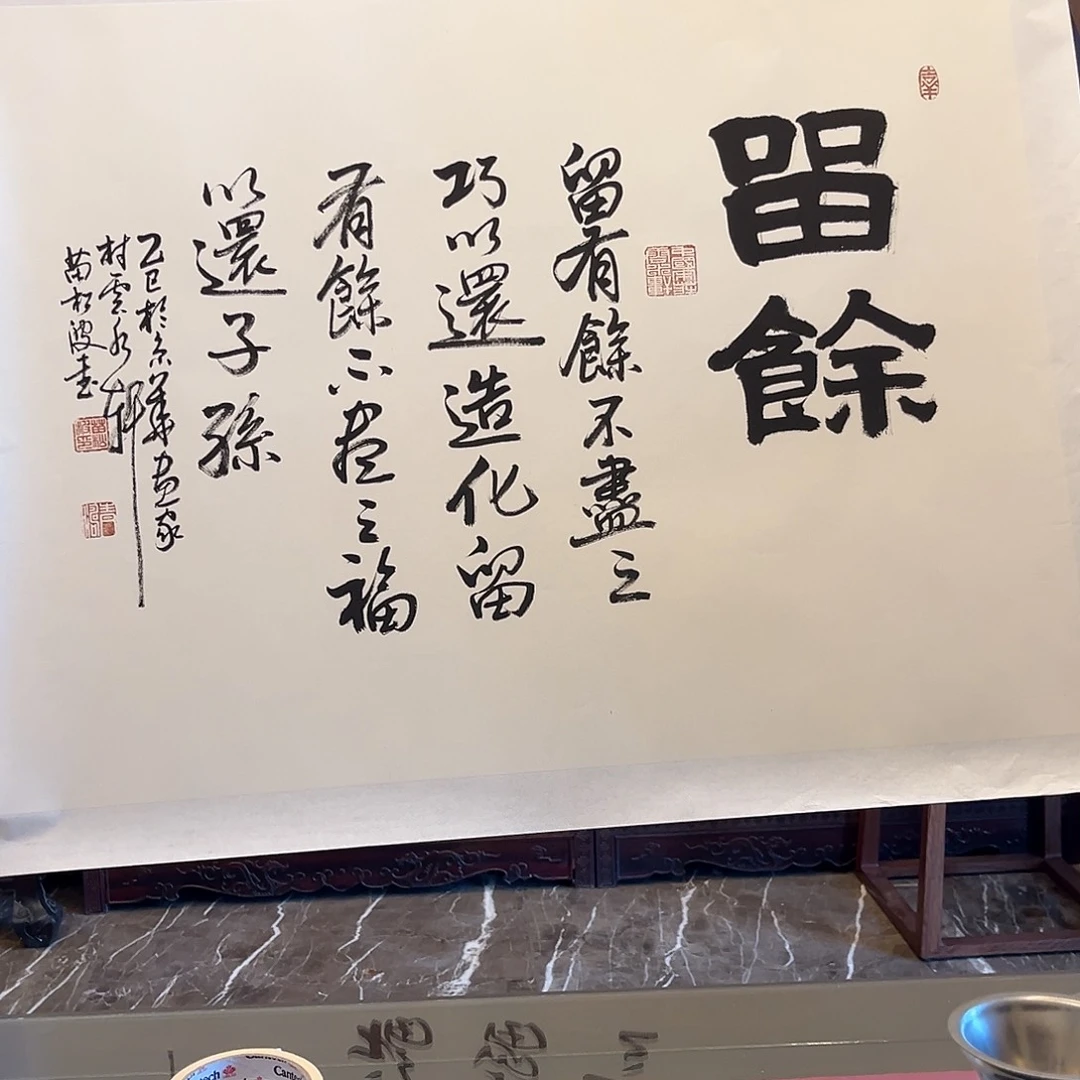 留餘
留有餘不盡之
巧以還造化留
有餘不盡之福
以還子孫
乙巳於京華畫家
村雲水軒
苗松波書
Cantech
Cantech